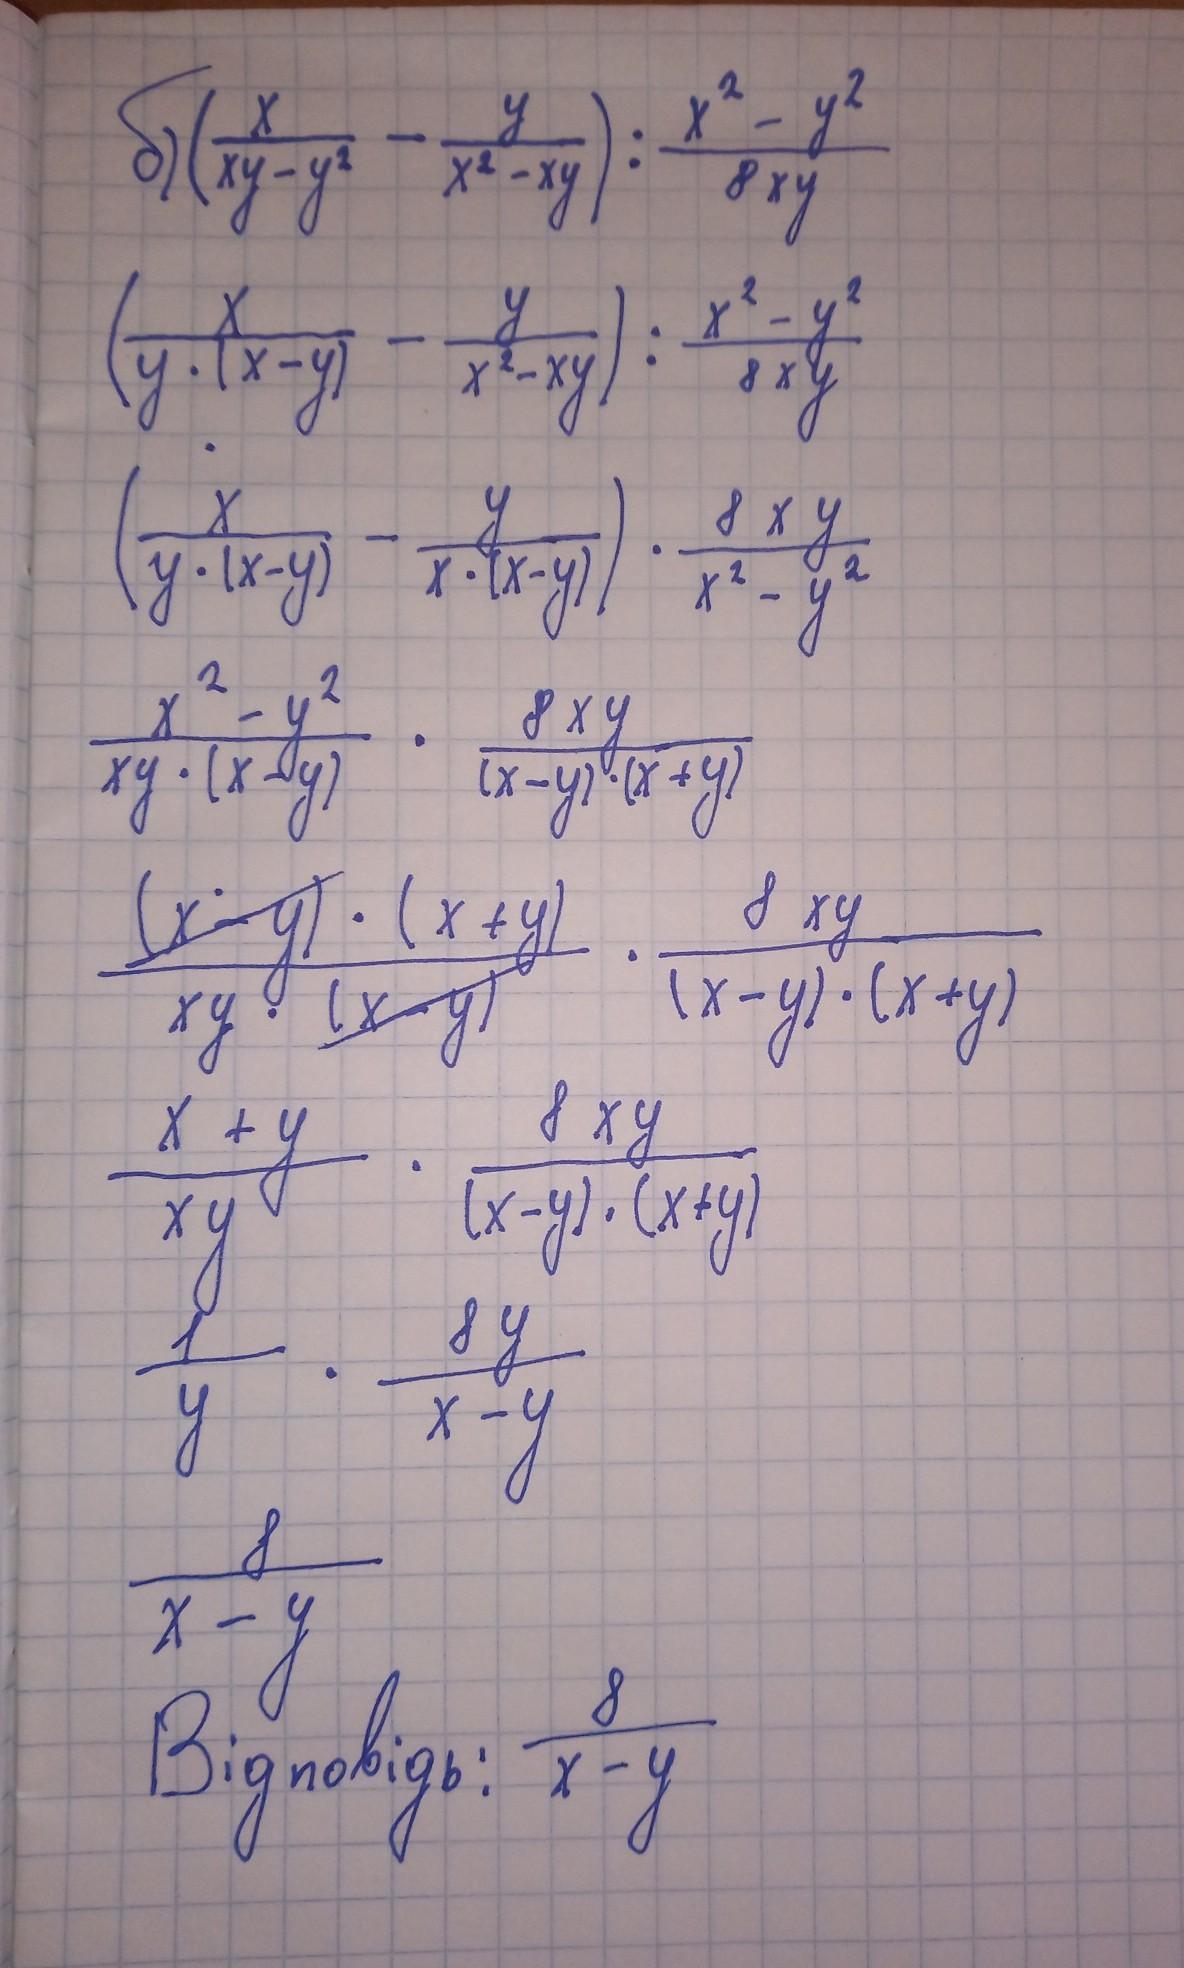 б) (x/(xy-y²) - y/(x²-xy)) : (x²-y²)/(8xy)
(x/(y·(x-y)) - y/(x²-xy)) : (x²-y²)/(8xy)
(x/(y·(x-y)) - y/(x·(x-y))) · (8xy)/(x²-y²)
(x²-y²)/(xy·(x-y)) · (8xy)/((x-y)·(x+y))
((x-y)·(x+y))/(xy·(x-y)) · (8xy)/((x-y)·(x+y))
(x+y)/(xy) · (8xy)/((x-y)·(x+y))
1/y · (8y)/(x-y)
8/(x-y)
Відповідь: 8/(x-y)